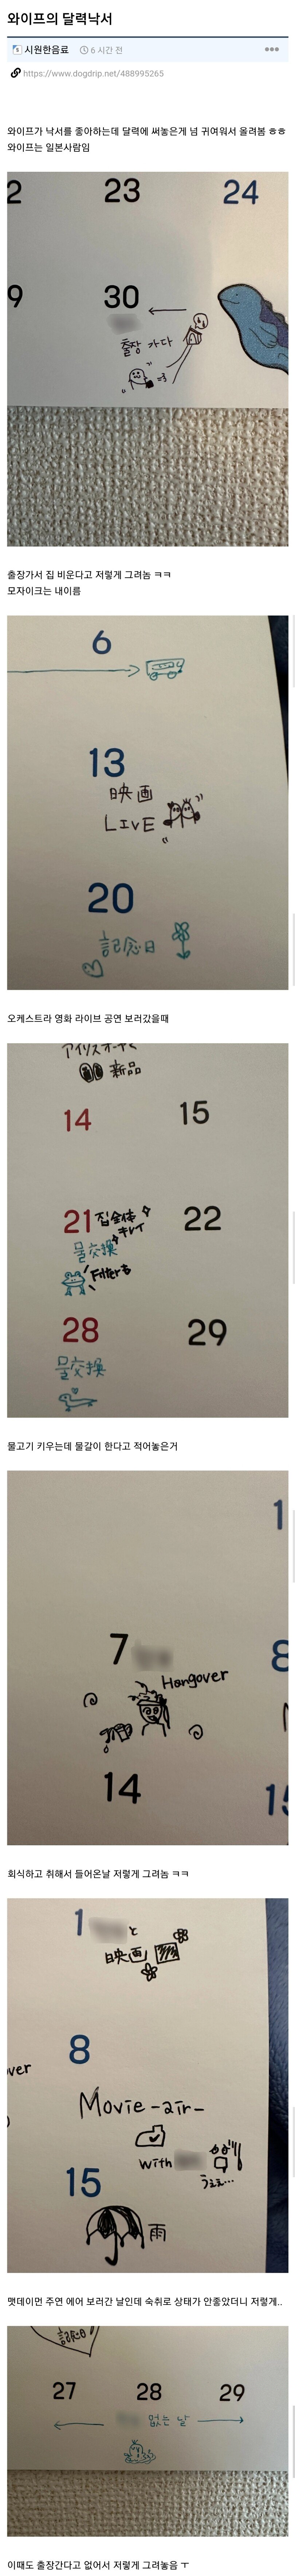 와이프의 달력낙서
시원한음료
6 시간 전
https://www.dogdrip.net/488995265
와이프가 낙서를 좋아하는데 달력에 써놓은게 넘 귀여워서 올려봄 ㅎㅎ
와이프는 일본사람임
2 23 24
9 30
출장 가다
출장가서 집 비운다고 저렇게 그려놈 ㅋㅋ
모자이크는 내이름
6
13
映画
LIVE
20
記念日
오케스트라 영화 라이브 공연 보러갔을때
新品
14 15
21 집全体 キレイ 22
물交換
Filterも
28 29
물交換
물고기 키우는데 물갈이 한다고 적어놓은거
1
7 8
Hangover
14 15
회식하고 취해서 들어온날 저렇게 그려놈 ㅋㅋ
1 と
映画
8
over
Movie -air-
with
うぇぇ…
15
雨
맷데이먼 주연 에어 보러간 날인데 숙취로 상태가 안좋았더니 저렇게..
記念日
27 28 29
없는 날
이때도 출장간다고 없어서 저렇게 그려놓음 ㅜ